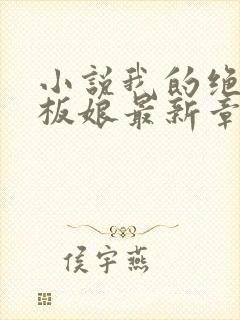 小说我的绝
板娘最新章
侯宇燕